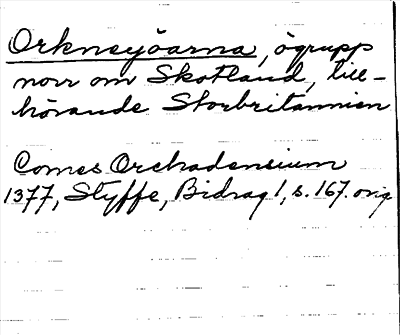 Orkneyöarna, ögrupp
norr om Skottland, till-
hörande Storbritannien
Comes Orchadensium
1377, Styffe, Bidrag 1, s. 167. orig